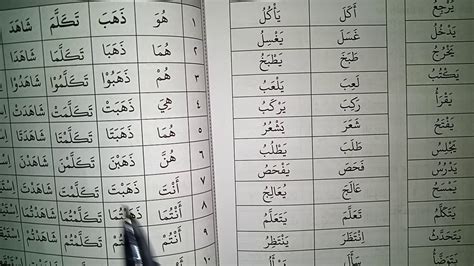 يَرْجِعُ أَكَلَ يَأْكُلُ
يَدْخُلُ غَسَلَ يَغْسِلُ
يَخْرُجُ طَبَخَ يَطْبَخُ
يَكْتُبُ لَعِبَ يَلْعَبُ
يَقْرَأُ رَكِبَ يَرْكَبُ
يَفْتَحُ شَعَرَ يَشْعُرُ
يَجْلِسُ طَلَبَ يَطْلُبُ
يَدْرُسُ فَحَصَ يَفْحَصُ
عَالَجَ يُعَالِجُ
يَتَكَلَّمُ تَعَلَّمَ يَتَعَلَّمُ
اِنْتَظَرَ يَنْتَظِرُ
يَتَوَضَّأُ
١ هُوَ ذَهَبَ تَكَلَّمَ شَاهَدَ
٢ هُمَا ذَهَبَا تَكَلَّمَا شَاهَدَا
٣ هُمْ ذَهَبُوْا تَكَلَّمُوْا شَاهَدُوْا
٤ هِيَ ذَهَبَتْ تَكَلَّمَتْ شَاهَدَتْ
٥ هُمَا ذَهَبَتَا تَكَلَّمَتَا شَاهَدَتَا
٦ هُنَّ ذَهَبْنَ تَكَلَّمْنَ شَاهَدْنَ
٧ أَنْتَ ذَهَبْتَ تَكَلَّمْتَ شَاهَدْتَ
٨ أَنْتُمَا ذَهَبْتُمَا تَكَلَّمْتُمَا شَاهَدْتُمَا
٩ أَنْتُمْ تَكَلَّمْتُمْ شَاهَدْتُمْ
١٠